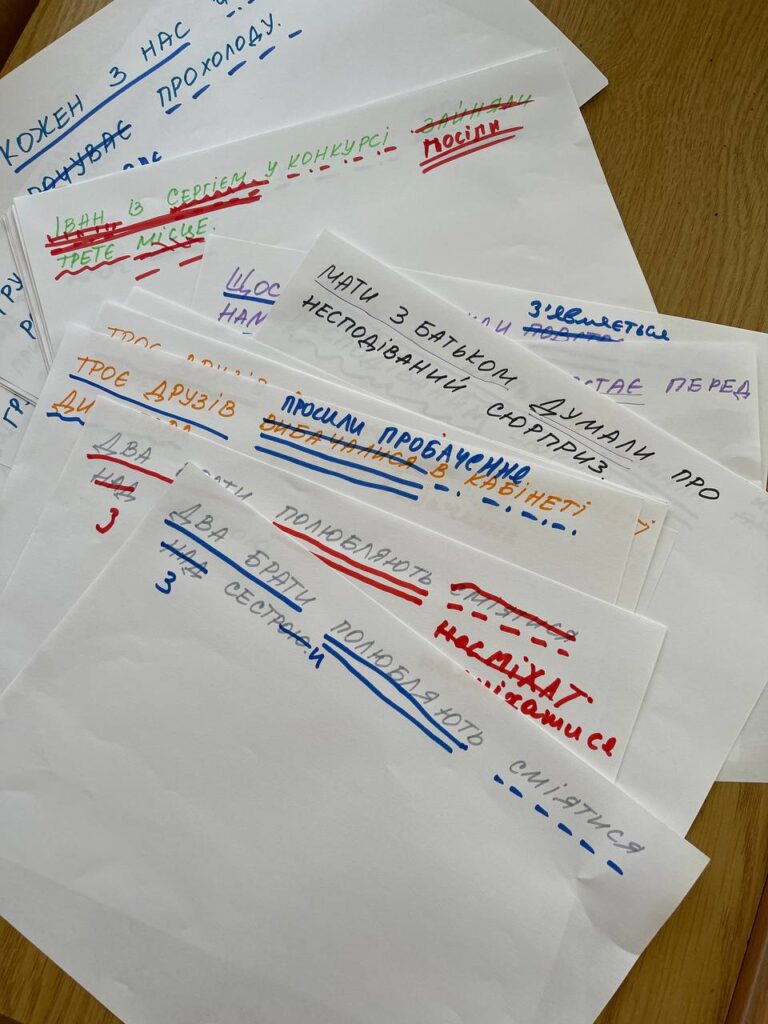 КОЖЕН З НАС
ПОЧУВАЄ ПРОХОЛОДУ.
ІВАН ІЗ СЕРГІЄМ У КОНКУРСІ ЗАЙНЯЛИ
посіли
ТРЕТЄ МІСЦЕ.
ЩОС
НАМ
з'являється
ОСТАЄ ПЕРЕД
МАТИ З БАТЬКОМ ДУМАЛИ ПРО
НЕСПОДІВАНИЙ СЮРПРИЗ.
ТРОЄ ДРУЗІВ ВИБАЧАЛИСЯ В КАБІНЕТІ
ПРОСИЛИ ПРОБАЧЕННЯ
ДВА БРАТИ ПОЛЮБЛЯЮТЬ СМІЯТИСЯ
НАД
З
НАСМІХАТ
ДВА БРАТИ ПОЛЮБЛЯЮТЬ СМІЯТИСЯ
НАД СЕСТРОЮ.
З и